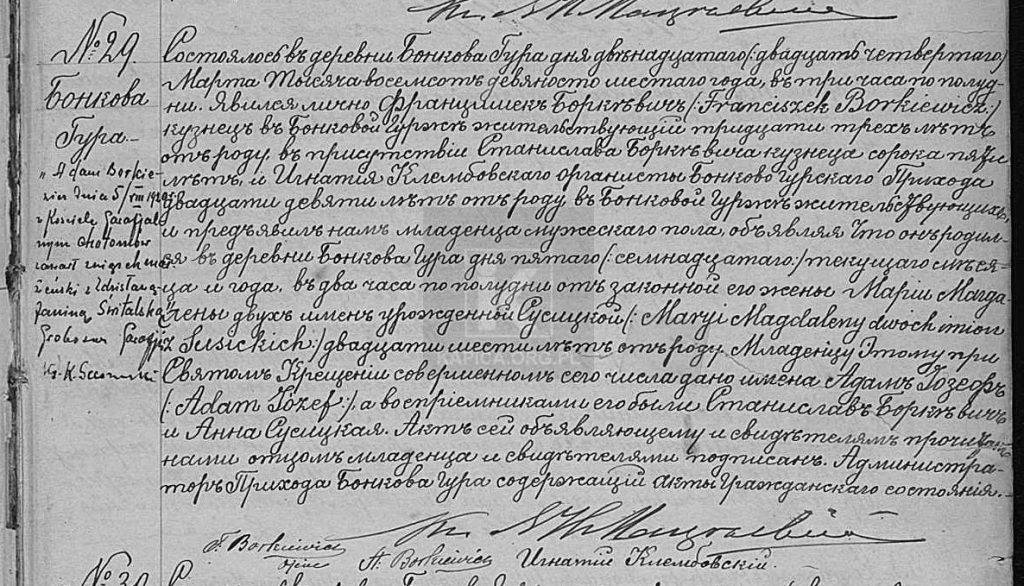 № 29.
Бонкова
Гура
"Adam Borkie-
wicz dnia 5/VIII 19
w Kościele Parafjal-
nym Chotomów
zawarł związek mał-
żeński z Zdzisławą
Janiną Świtalską
Grobowa Parafja
Состоялось въ деревни Бонкова Гура дня двѣнадцатаго (:двадцать четвертаго:)
Марта Тысяча восемсотъ девяносто шестаго года, въ три часа по полуд-
ни. Явился лично Францишекъ Боркѣвичъ (:Franciszek Borkiewicz:)
кузнецъ въ Бонковой Гуржѣ жительствующій тридцати трехъ лѣтъ
отъ роду, въ присутствіи Станислава Боркѣвича кузнеца сорока пяти
лѣтъ, и Игнатія Клембовскаго органисты Бонково Гурскаго Прихода
двадцати девяти лѣтъ отъ роду въ Бонковой Гуржѣ жительствующихъ,
и предъявилъ намъ младенца мужескаго пола, объявляя что онъ родил-
ся въ деревни Бонкова Гура дня пятаго (:семнадцатаго:) текущаго мѣся-
ца и года, въ два часа по полудни отъ законной его жены Маріи Магда-
лены двухъ именъ урожденной Сусицкой (:Maryi Magdaleny dwoch imion
z Susickich:) двадцати шести лѣтъ отъ роду. Младенцу этому при
Святомъ Крещеніи совершенномъ сего числа дано имена Адамъ Іозефъ
(:Adam Józef:), а воспріемниками его были Станиславъ Боркѣвичъ
и Анна Сусицкая. Актъ сей объявляющему и свидѣтелямъ прочитанъ
нами отцомъ младенца и свидѣтелями подписанъ. Администра-
торъ Прихода Бонкова Гура содержащій акты Гражданскаго состоянія.
F. Borkiewicz
ojciec
A. Borkiewicz
Игнатій Клембовскій.
№ 30